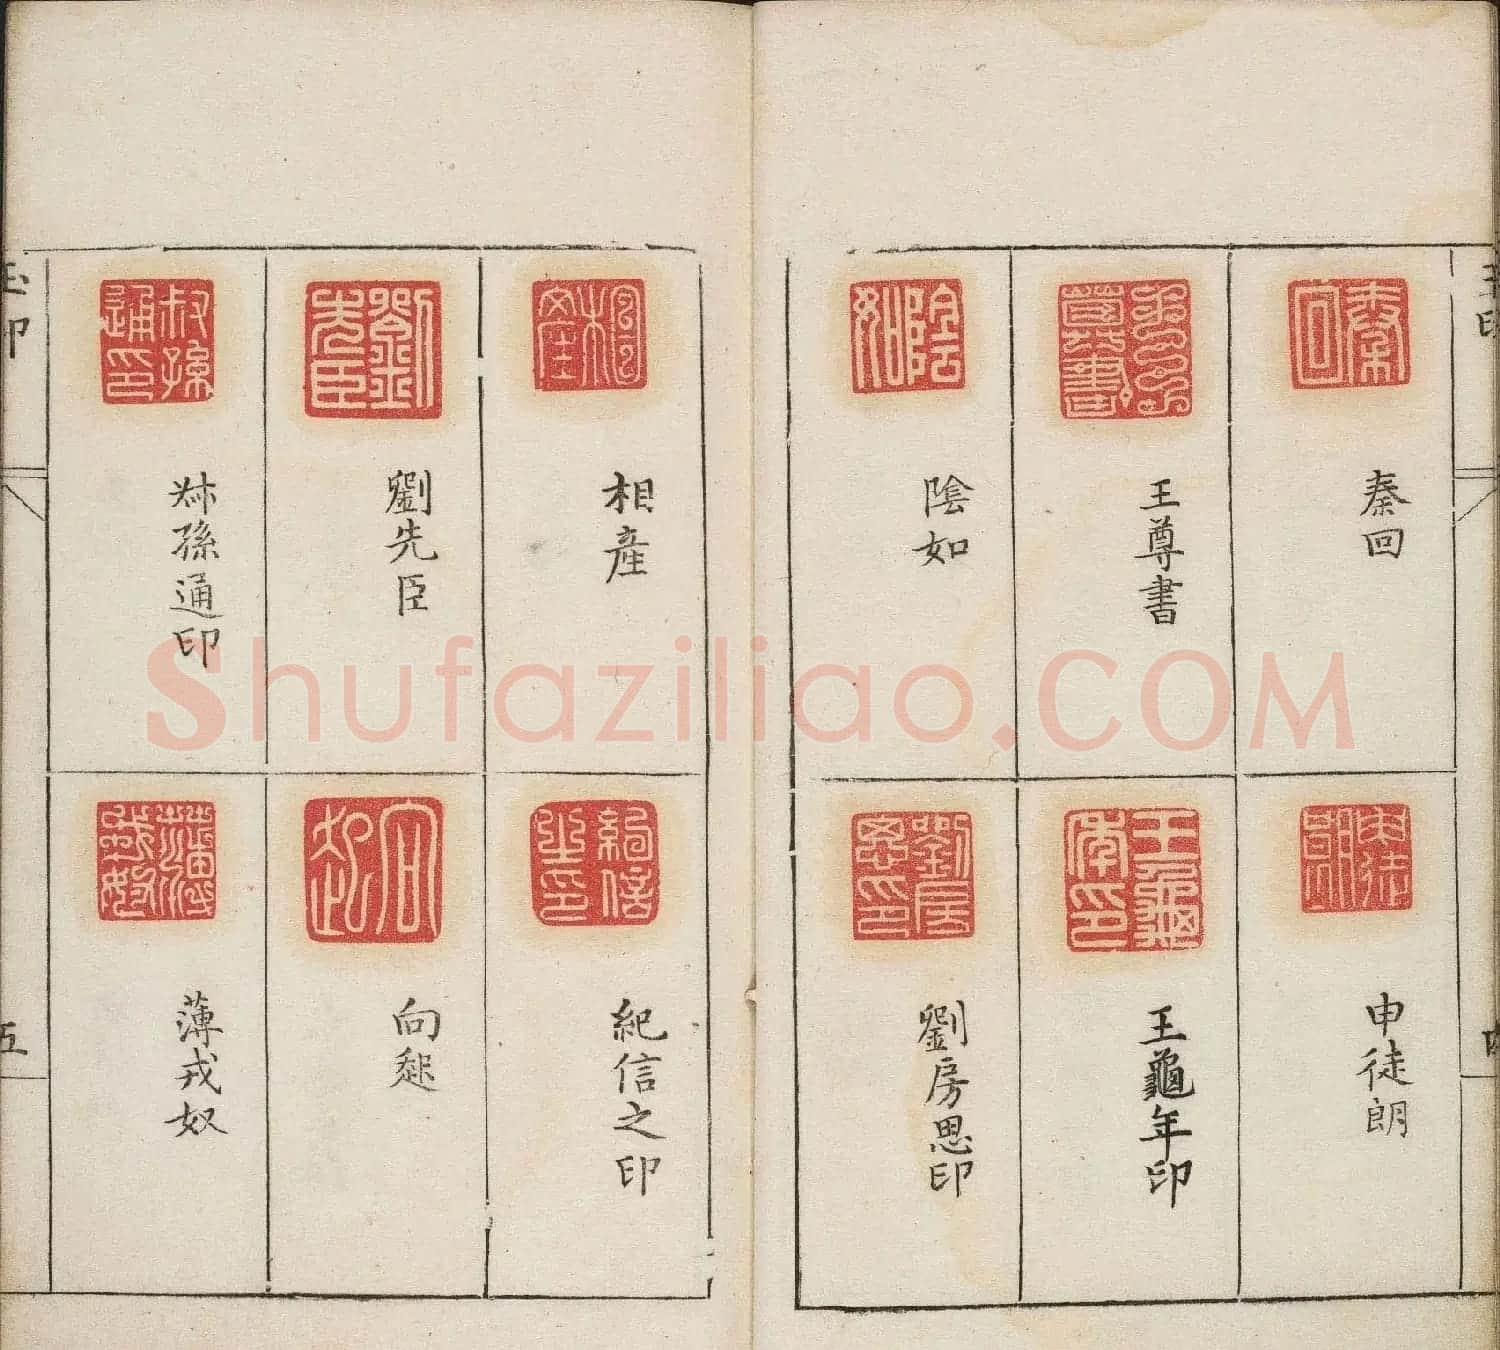 玉印
秦回
王尊書
陰如
申徒朗
王龜年印
劉房思印
相產
劉先臣
叔孫通印
紀信之印
向
薄戎奴
玉印
五
Shufaziliao.COM